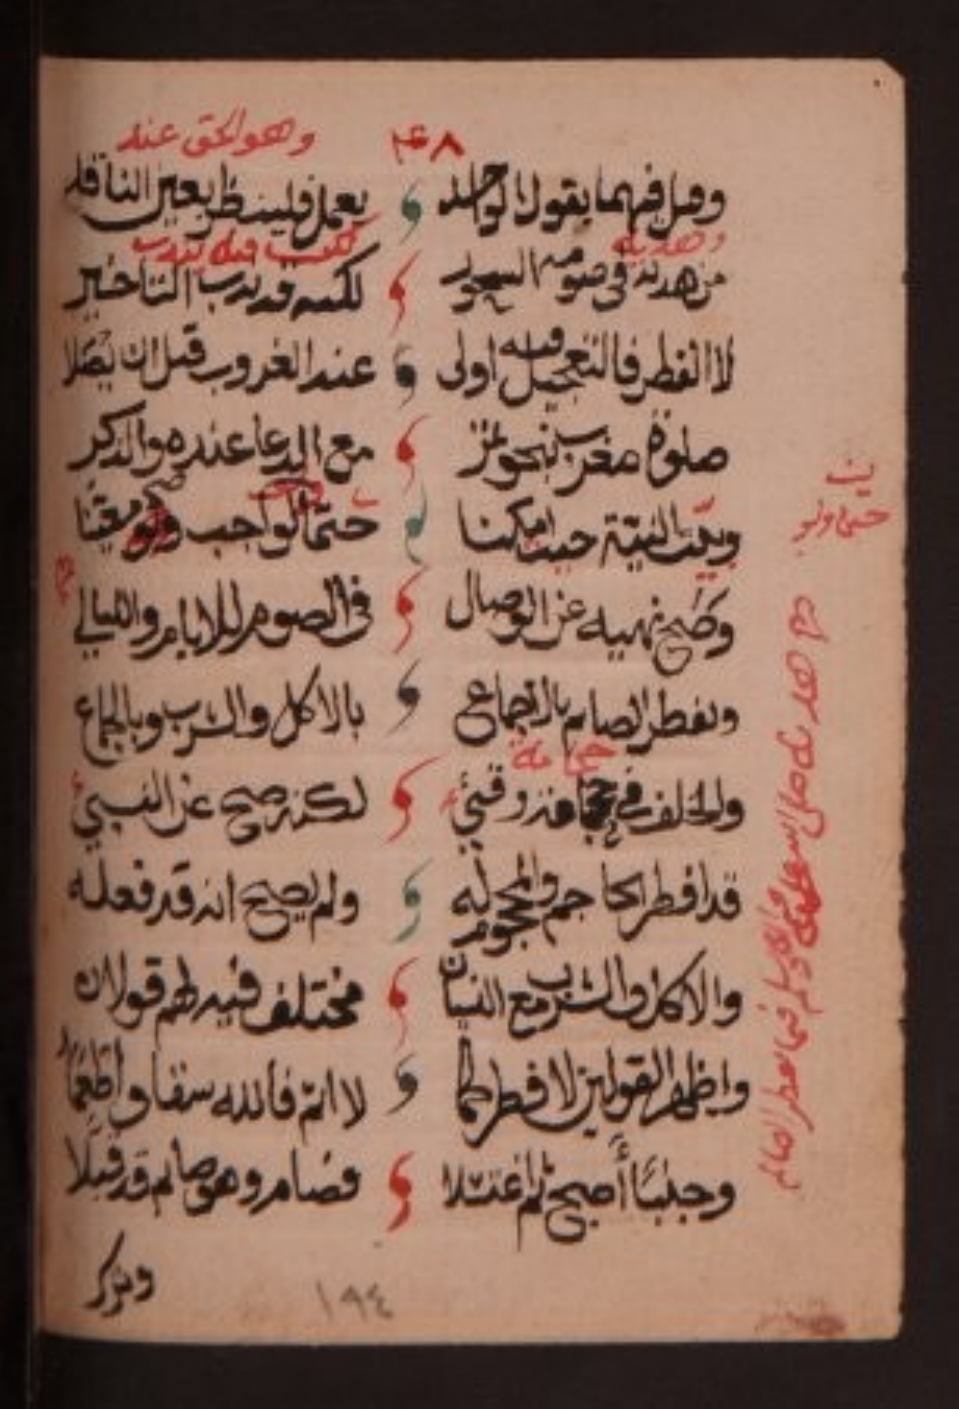 ٢٤٨ وهو الحق عند
وقيل فيهما بقول الواحد يعمل فلينظر بعين الناقد
وهديه لكنه قد يندب
من هديه في صومه السحور لكنه قد يندب التاخير
لا الفطر فالتعجيل فيه اولى عند الغروب قبل ان يصلا
صلوة مغرب بنحو تمر مع الدعا عنده والذكر
ويبت النية حيث امكنا حتما لواجب ولو معينا
حتما ولو
وصح نهيه عن الوصال في الصوم للايام والليالي
ويفطر الصايم بالاجماع بالاكل والشرب وبالجماع
حجامة
والخلف في حجامة وقيئ لكنه صح عن النبيئ
قد افطر الحاجم والمحجوم له ولم يصح انه قد فعله
والاكل والشرب مع النسيان مختلف فيه لهم قولان
واظهر القولين لا فطر لهما لا اثم فالله سقا واطعما
وجنبا أصبح ثم اغتسلا فصام وهو صايم قد قبلا
هديه صلى الله عليه وسلم فيما يفطر الصائم
ويذكر
١٩٤